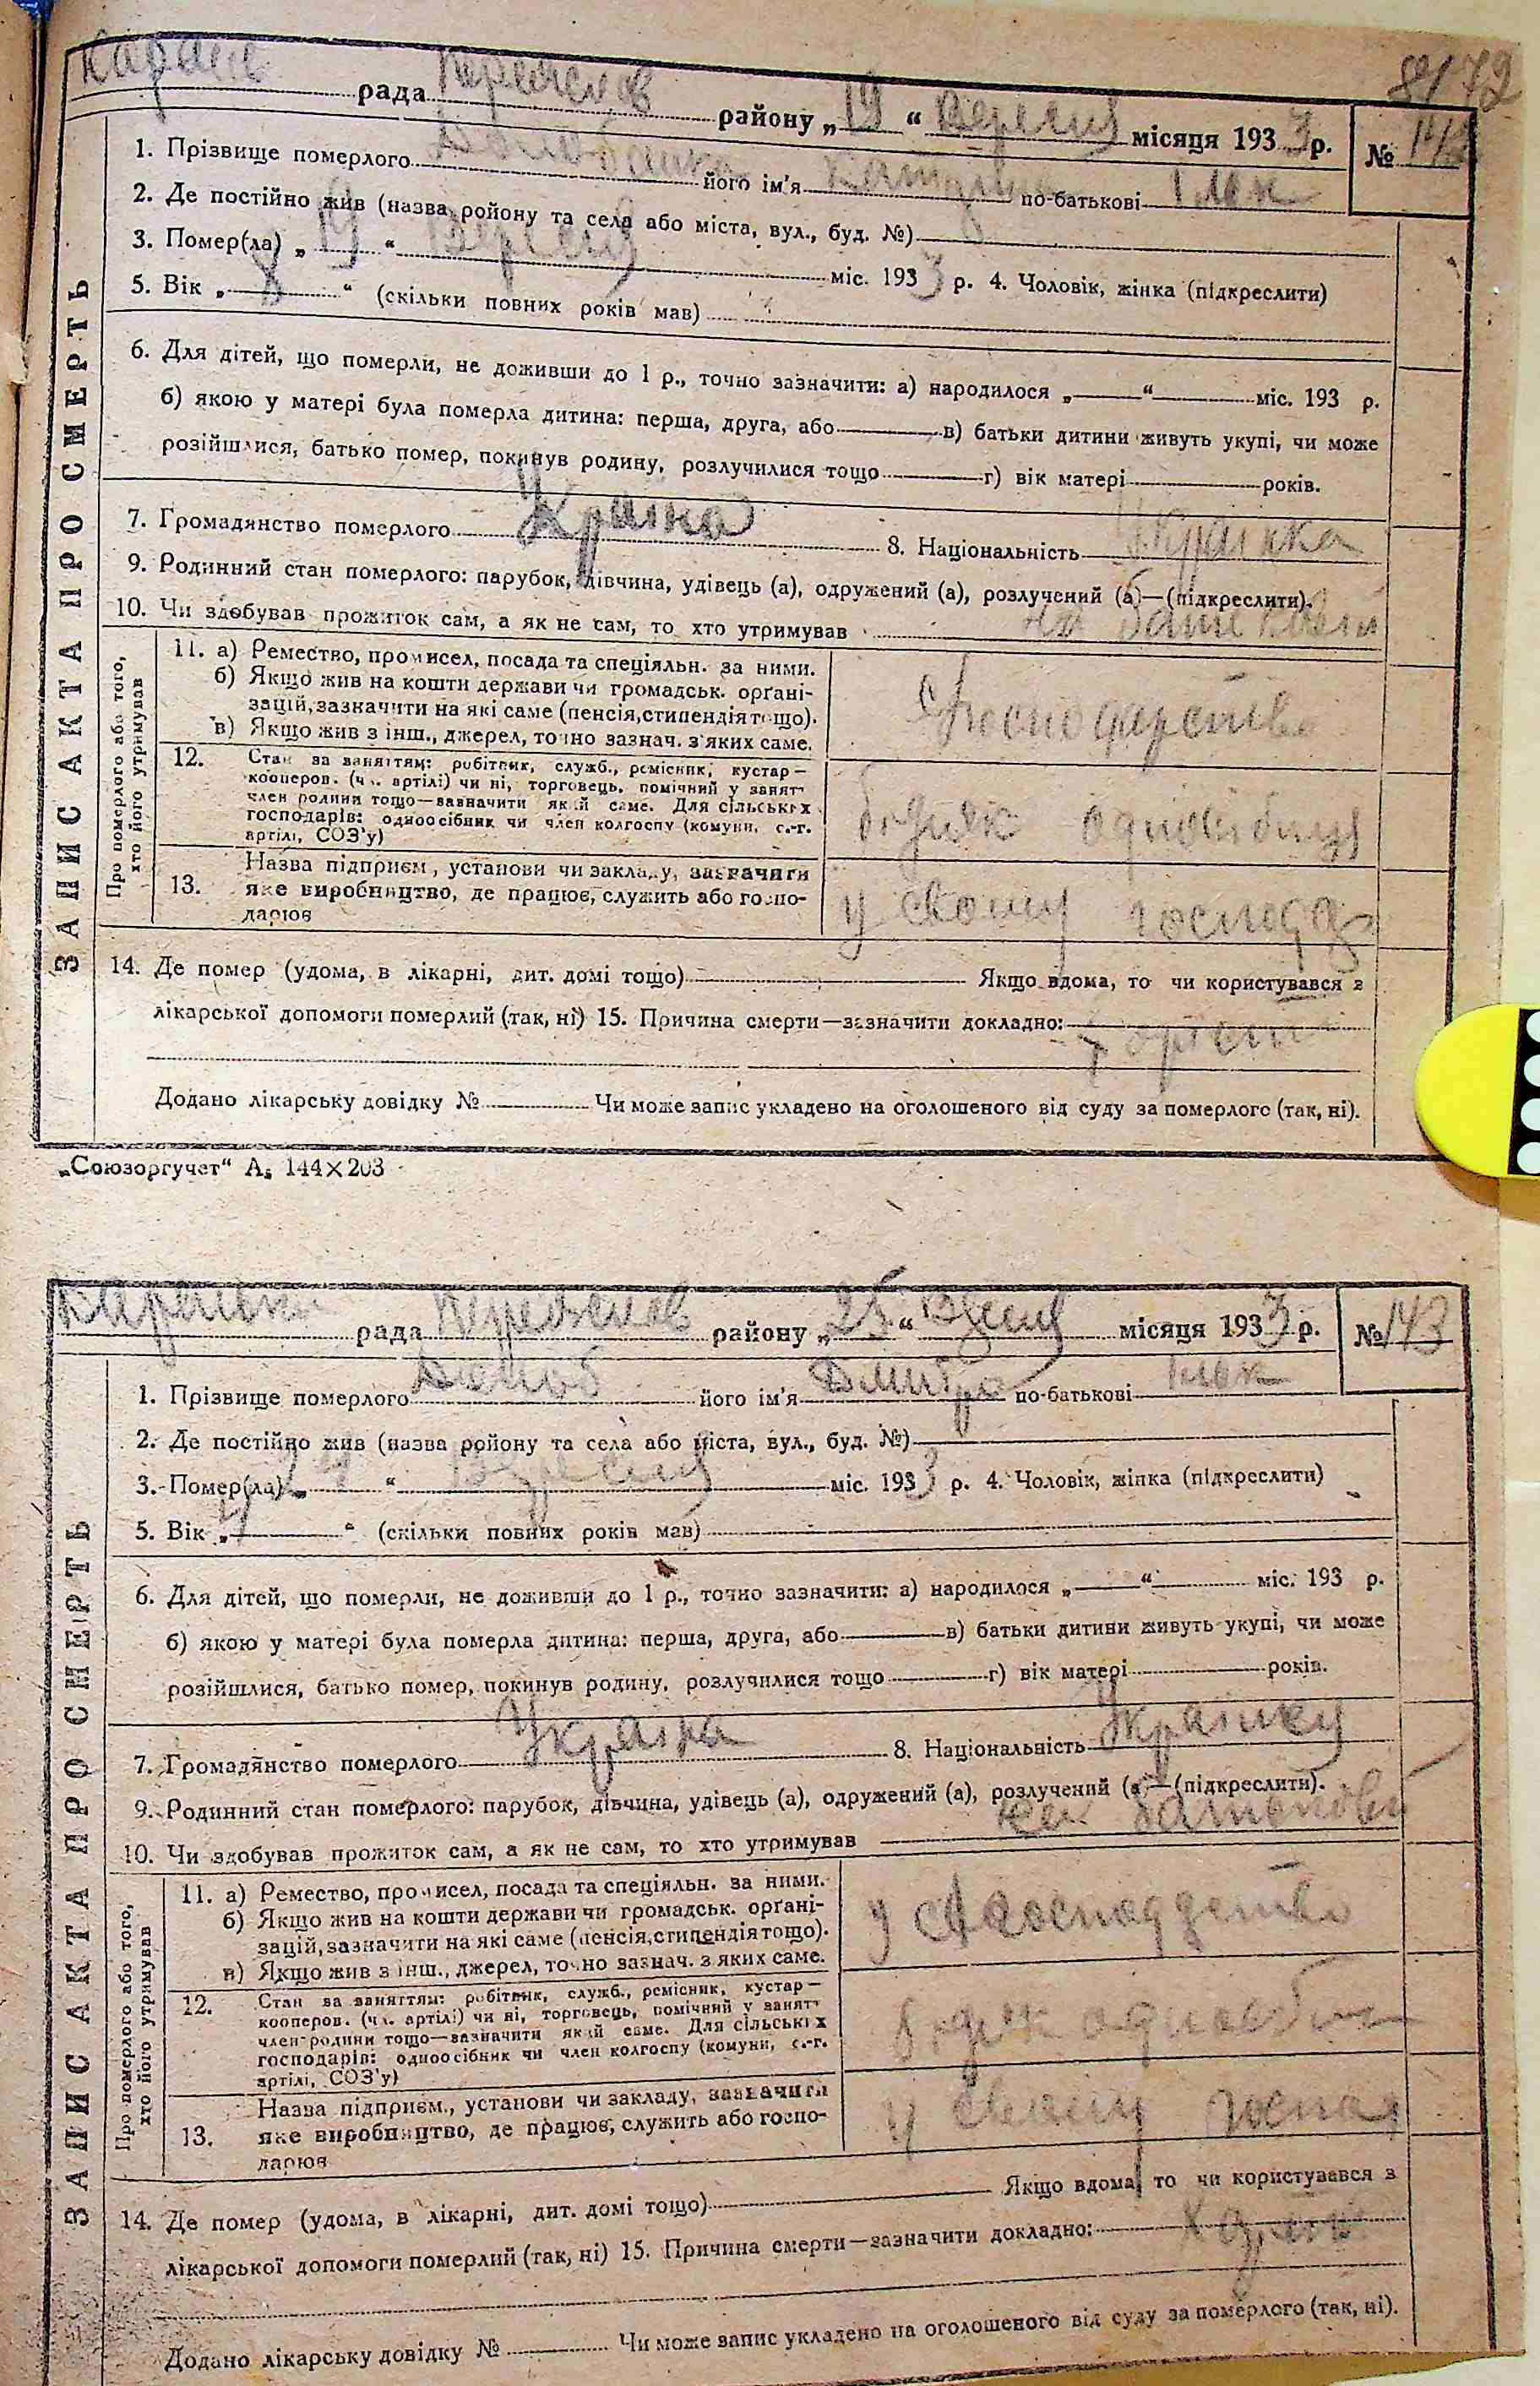 84 72
рада Переяслов району „19“ Вересня місяця 1933 р. № 142
1. Прізвище померлого його ім'я по-батькові
2. Де постійно жив (назва ройону та села або міста, вул., буд. №)
3. Помер(ла) „19“ Вересня міс. 1933 р. 4. Чоловік, жінка (підкреслити)
5. Вік „8“ (скільки повних років мав)
6. Для дітей, що померли, не доживши до 1 р., точно зазначити: а) народилося „ “ міс. 193 р.
б) якою у матері була померла дитина: перша, друга, або в) батьки дитини живуть укупі, чи може
розійшлися, батько помер, покинув родину, розлучилися тощо г) вік матері років.
7. Громадянство померлого Україна 8. Національність Українка
9. Родинний стан померлого: парубок, дівчина, удівець (а), одружений (а), розлучений (а)—(підкреслити).
10. Чи здобував прожиток сам, а як не сам, то хто утримував
ЗАПИС АКТА ПРО СМЕРТЬ
Про померлого або того, хто його утримував
11. а) Ремество, промисел, посада та спеціяльн. за ними.
б) Якщо жив на кошти держави чи громадськ. орґані-
зацій, зазначити на які саме (пенсія, стипендія тощо).
в) Якщо жив з інш., джерел, точно зазнач. з яких саме.
12. Стан за заняттям: робітник, служб., ремісник, кустар—
кооперов. (чл. артілі) чи ні, торговець, помічний у занятт
член родини тощо—зазначити який саме. Для сільських
господарів: одноосібник чи член колгоспу (комуни, с.-г.
артілі, СОЗ'у)
бідняк
13. Назва підприєм., установи чи закладу, зазначити
яке виробництво, де працює, служить або госпо-
дарює
у свому господ
14. Де помер (удома, в лікарні, дит. домі тощо) Якщо вдома, то чи користувався з
лікарської допомоги померлий (так, ні) 15. Причина смерти—зазначити докладно:
Додано лікарську довідку № Чи може запис укладено на оголошеного від суду за померлого (так, ні).
„Союзоргучет“ А₅ 144×203
рада Переяслов району „25“ місяця 1933 р. № 143
1. Прізвище померлого його ім'я Дмитро по-батькові
2. Де постійно жив (назва ройону та села або міста, вул., буд. №)
3. Помер(ла) „24“ Вересня міс. 1933 р. 4. Чоловік, жінка (підкреслити)
5. Вік „ “ (скільки повних років мав)
6. Для дітей, що померли, не доживши до 1 р., точно зазначити: а) народилося „ “ міс. 193 р.
б) якою у матері була померла дитина: перша, друга, або в) батьки дитини живуть укупі, чи може
розійшлися, батько помер, покинув родину, розлучилися тощо г) вік матері років.
7. Громадянство померлого Україна 8. Національність
9. Родинний стан померлого: парубок, дівчина, удівець (а), одружений (а), розлучений (а)—(підкреслити).
10. Чи здобував прожиток сам, а як не сам, то хто утримував
ЗАПИС АКТА ПРО СМЕРТЬ
Про померлого або того, хто його утримував
11. а) Ремество, промисел, посада та спеціяльн. за ними.
б) Якщо жив на кошти держави чи громадськ. орґані-
зацій, зазначити на які саме (пенсія, стипендія тощо).
в) Якщо жив з інш., джерел, точно зазнач. з яких саме.
12. Стан за заняттям: робітник, служб., ремісник, кустар—
кооперов. (чл. артілі) чи ні, торговець, помічний у занятт
член родини тощо—зазначити який саме. Для сільських
господарів: одноосібник чи член колгоспу (комуни, с.-г.
артілі, СОЗ'у)
13. Назва підприєм., установи чи закладу, зазначити
яке виробництво, де працює, служить або госпо-
дарює
у свому господ
14. Де помер (удома, в лікарні, дит. домі тощо) Якщо вдома, то чи користувався з
лікарської допомоги померлий (так, ні) 15. Причина смерти—зазначити докладно:
Додано лікарську довідку № Чи може запис укладено на оголошеного від суду за померлого (так, ні).